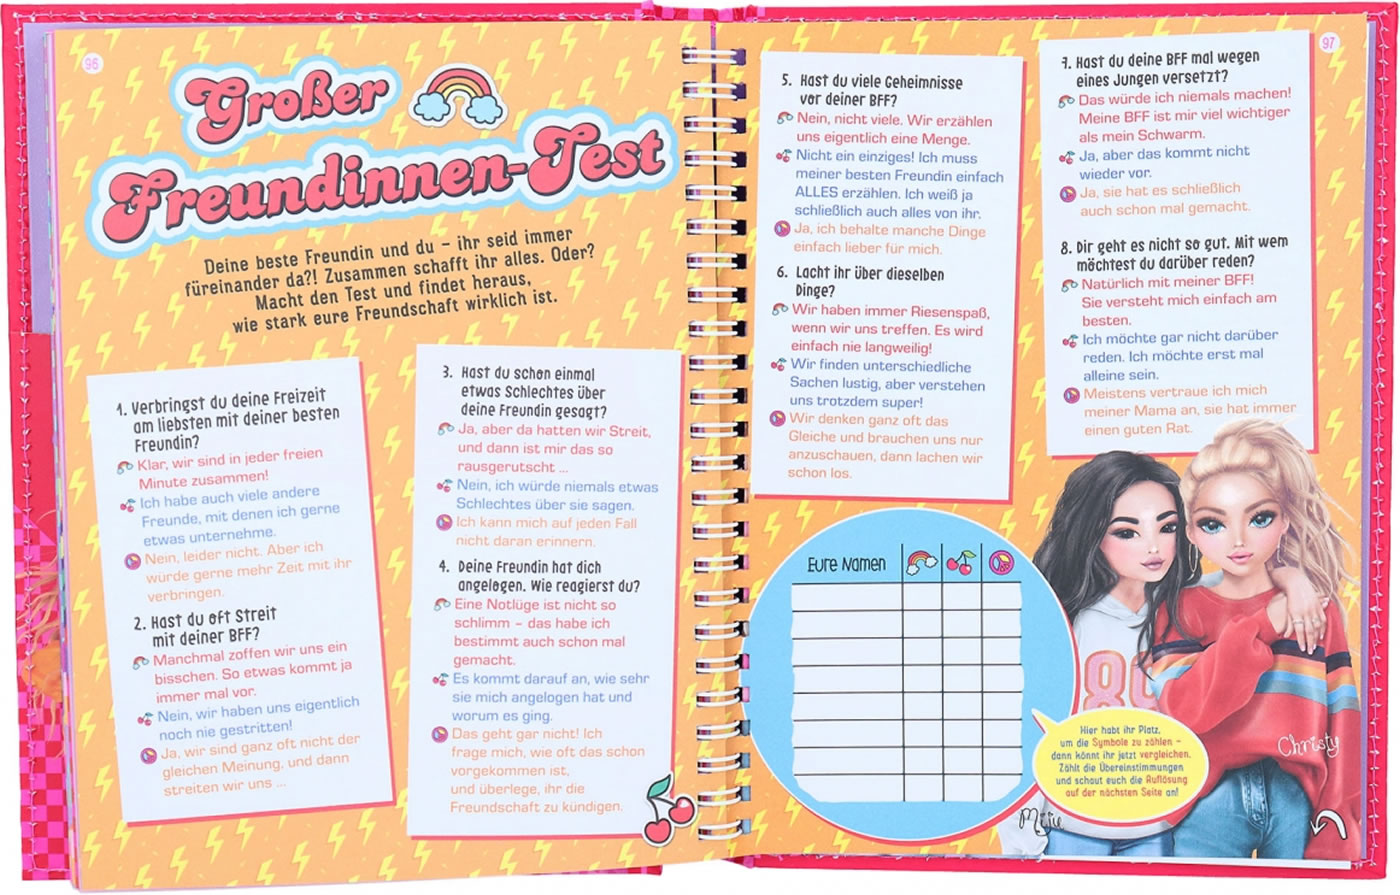 96
Großer
Freundinnen-Test
Deine beste Freundin und du – ihr seid immer
füreinander da?! Zusammen schafft ihr alles. Oder?
Macht den Test und findet heraus,
wie stark eure Freundschaft wirklich ist.
1. Verbringst du deine Freizeit
am liebsten mit deiner besten
Freundin?
Klar, wir sind in jeder freien
Minute zusammen!
Ich habe auch viele andere
Freunde, mit denen ich gerne
etwas unternehme.
Nein, leider nicht. Aber ich
würde gerne mehr Zeit mit ihr
verbringen.
2. Hast du oft Streit
mit deiner BFF?
Manchmal zoffen wir uns ein
bisschen. So etwas kommt ja
immer mal vor.
Nein, wir haben uns eigentlich
noch nie gestritten!
Ja, wir sind ganz oft nicht der
gleichen Meinung, und dann
streiten wir uns ...
3. Hast du schon einmal
etwas Schlechtes über
deine Freundin gesagt?
Ja, aber da hatten wir Streit,
und dann ist mir das so
rausgerutscht ...
Nein, ich würde niemals etwas
Schlechtes über sie sagen.
Ich kann mich auf jeden Fall
nicht daran erinnern.
4. Deine Freundin hat dich
angelogen. Wie reagierst du?
Eine Notlüge ist nicht so
schlimm – das habe ich
bestimmt auch schon mal
gemacht.
Es kommt darauf an, wie sehr
sie mich angelogen hat und
worum es ging.
Das geht gar nicht! Ich
frage mich, wie oft das schon
vorgekommen ist,
und überlege, ihr die
Freundschaft zu kündigen.
5. Hast du viele Geheimnisse
vor deiner BFF?
Nein, nicht viele. Wir erzählen
uns eigentlich eine Menge.
Nicht ein einziges! Ich muss
meiner besten Freundin einfach
ALLES erzählen. Ich weiß ja
schließlich auch alles von ihr.
Ja, ich behalte manche Dinge
einfach lieber für mich.
6. Lacht ihr über dieselben
Dinge?
Wir haben immer Riesenspaß,
wenn wir uns treffen. Es wird
einfach nie langweilig!
Wir finden unterschiedliche
Sachen lustig, aber verstehen
uns trotzdem super!
Wir denken ganz oft das
Gleiche und brauchen uns nur
anzuschauen, dann lachen wir
schon los.
97
7. Hast du deine BFF mal wegen
eines Jungen versetzt?
Das würde ich niemals machen!
Meine BFF ist mir viel wichtiger
als mein Schwarm.
Ja, aber das kommt nicht
wieder vor.
Ja, sie hat es schließlich
auch schon mal gemacht.
8. Dir geht es nicht so gut. Mit wem
möchtest du darüber reden?
Natürlich mit meiner BFF!
Sie versteht mich einfach am
besten.
Ich möchte gar nicht darüber
reden. Ich möchte erst mal
alleine sein.
Meistens vertraue ich mich
meiner Mama an, sie hat immer
einen guten Rat.
Eure Namen
Hier habt ihr Platz,
um die Symbole zu zählen –
dann könnt ihr jetzt vergleichen.
Zählt die Übereinstimmungen
und schaut euch die Auflösung
auf der nächsten Seite an!
Christy